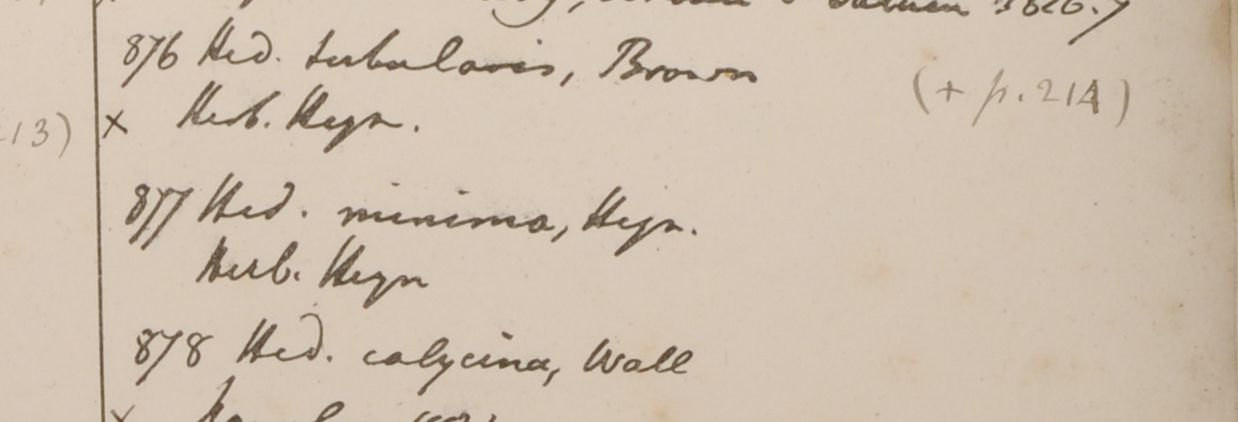 1826.)
876 Hed. tubularis, Brown
(+ p. 214)
13) × Herb. Heyn.
877 Hed. minima, Heyn.
Herb. Heyn
878 Hed. calycina, Wall
×